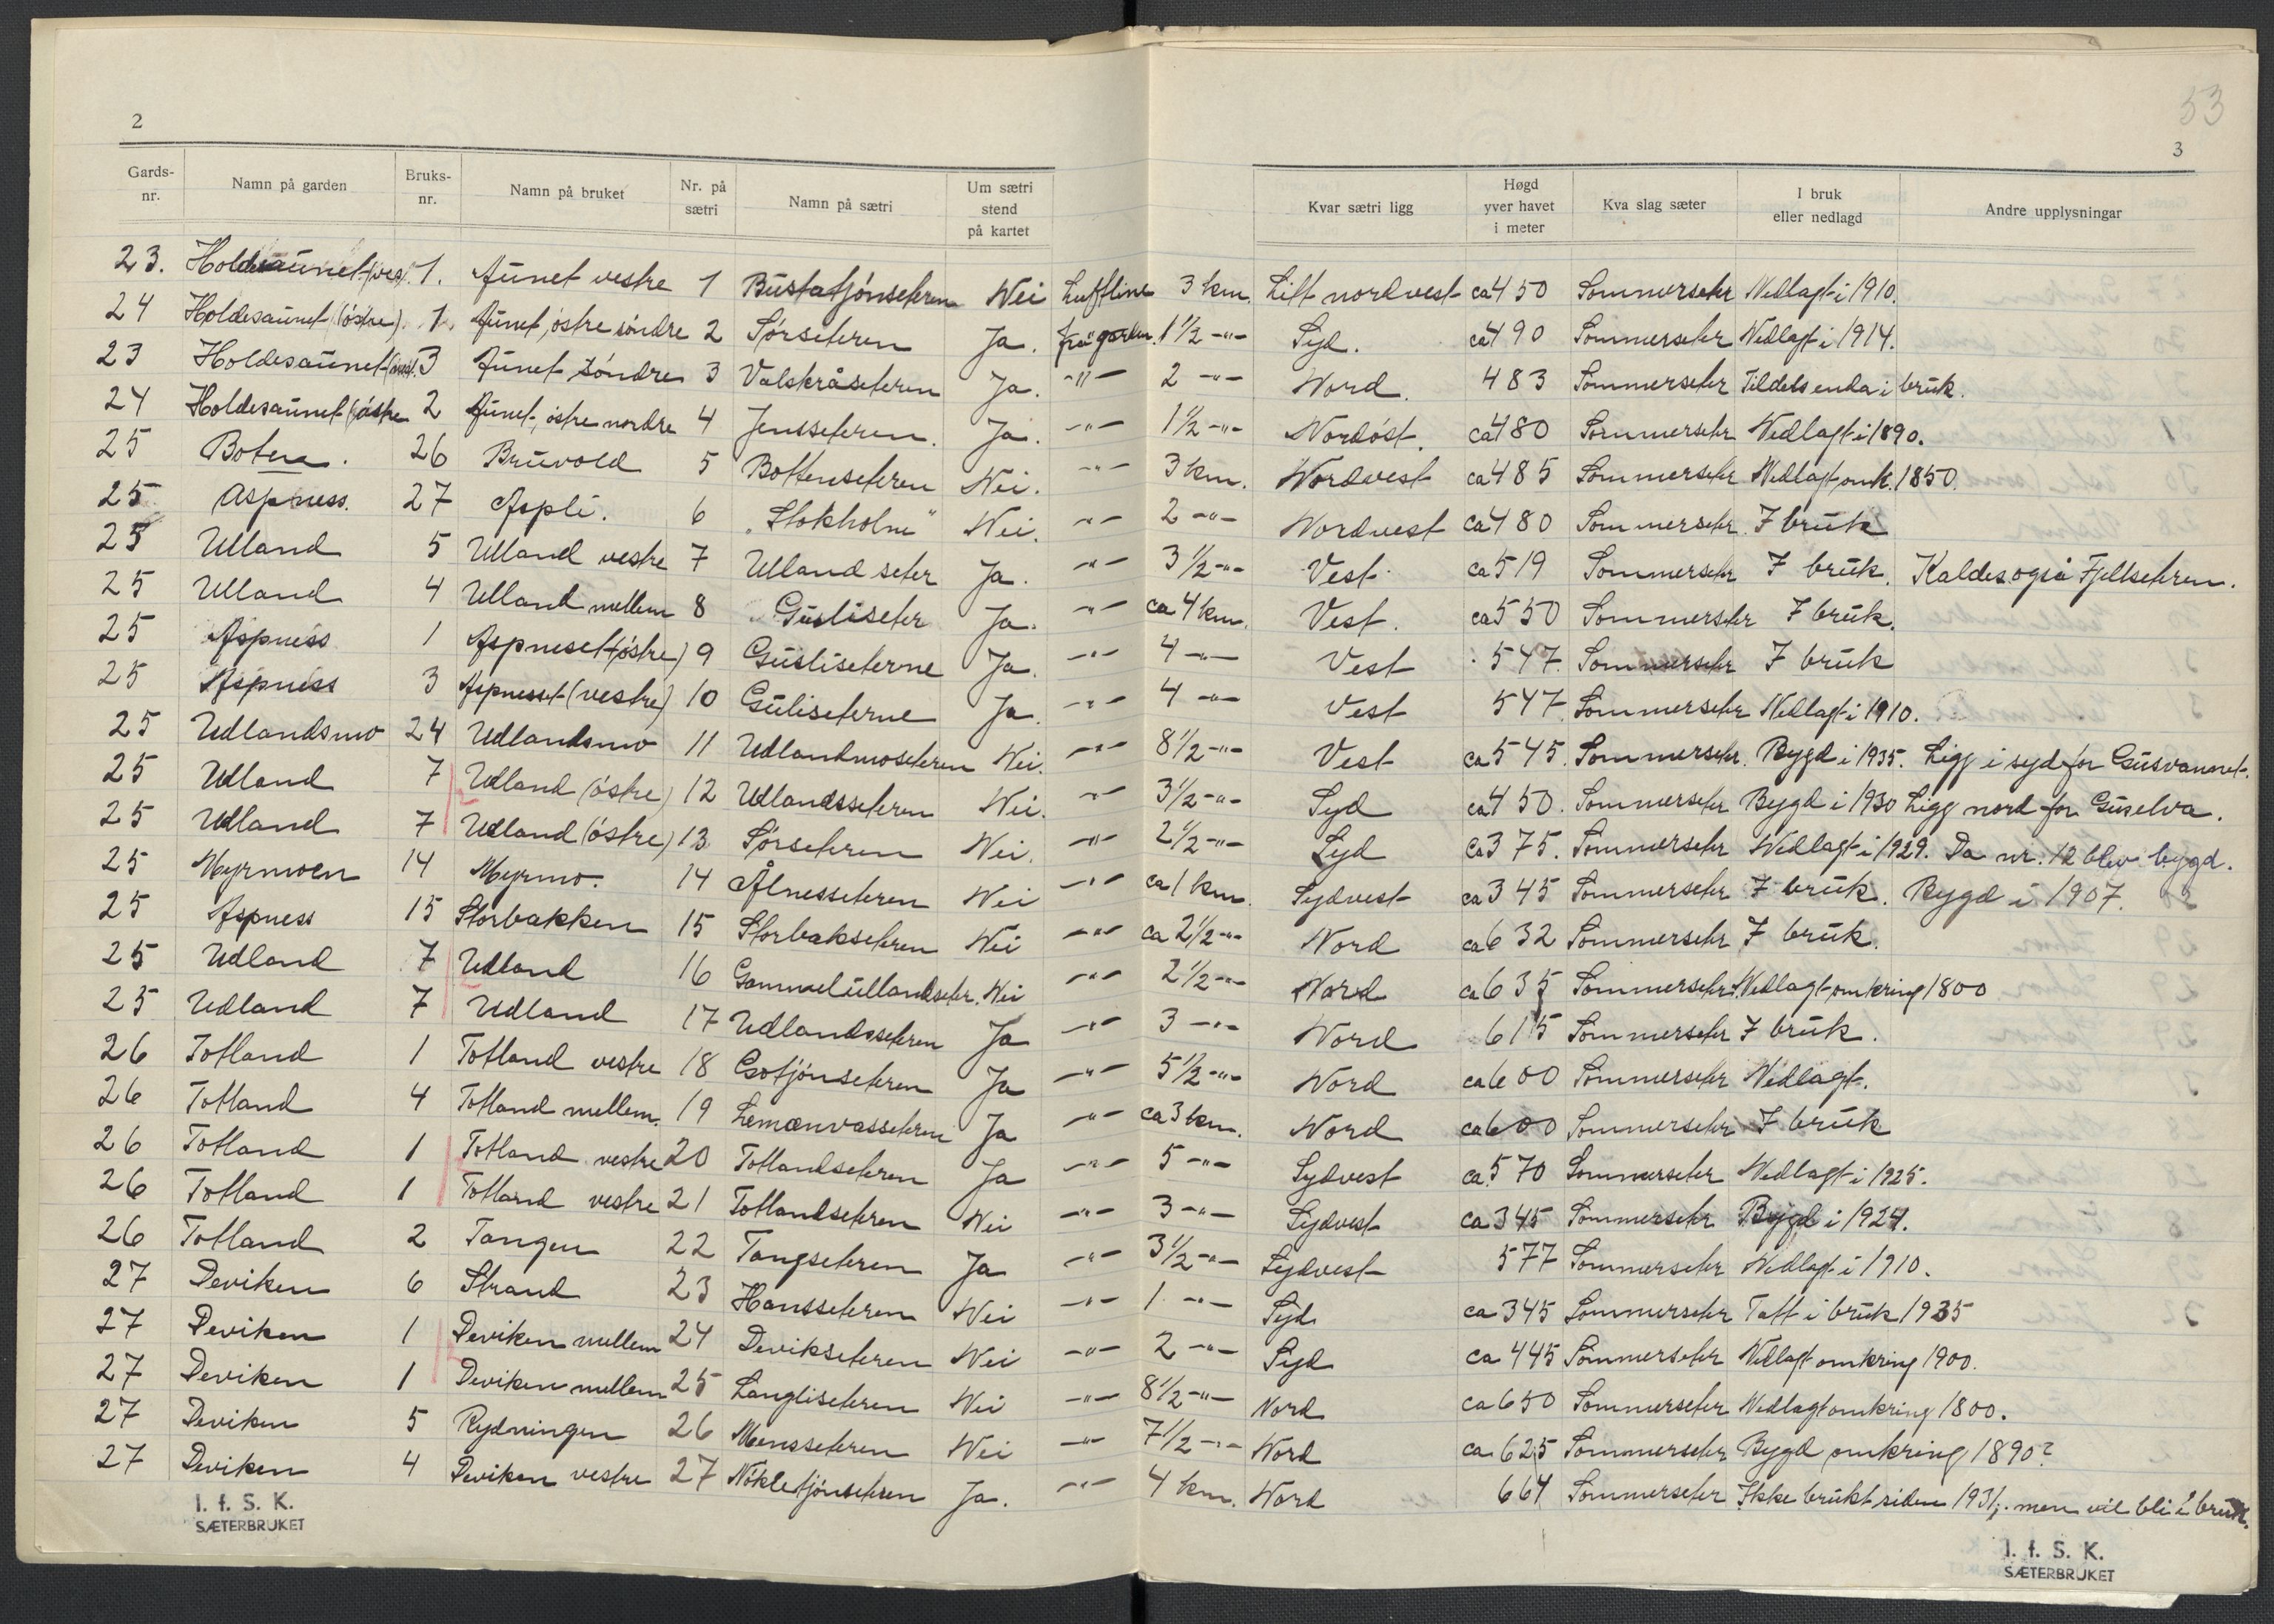 2
53
3
Gards-nr. Namn på garden Bruks-nr. Namn på bruket Nr. på sætri Namn på sætri Um sætri stend på kartet Kvar sætri ligg Høgd yver havet i meter Kva slag sæter I bruk eller nedlagd Andre upplysningar
23. Holdesaunet (vest). 1. Aunet vestre 1 Bustatjönseteren Nei Luftline 3 km. Litt nordvest ca 450 Sommerseter Nedlagt i 1910.
24 Holdesaunet (östre). 1. Aunet, östre söndre 2 Sörseteren Ja. frå garden. 1 1/2 -"- Syd. ca 490 Sommerseter Nedlagt i 1914.
23 Holdesaunet 3 Aunet söndre 3 Valskråseteren Ja. -"- 2 -"- Nord. 483 Sommerseter Tildels enda i bruk.
24 Holdesaunet (östre 2 Aunet, östre nordre 4 Jensseteren. Ja. -"- 1 1/2 -"- Nordöst. ca 480 Sommerseter Nedlagt i 1890.
25 Boten. 26 Bruvold 5 Bottenseteren Nei. -"- 3 km. Nordvest ca 485 Sommerseter Nedlagt omk. 1850.
25 Aspness. 27 Aspli. 6 "Stokholm" Nei. -"- 2 -"- Nordvest ca 480 Sommerseter. I bruk
25 Ulland 5 Ulland vestre 7 Ulland seter Ja. -"- 3 1/2 -"- Vest. ca 519 Sommerseter I bruk. Kaldes også Fjellseteren.
25 Ulland 4 Ulland mellem 8 Gusliseter Ja. -"- ca 4 km. Vest. ca 550 Sommerseter I bruk.
25 Aspness 1 Aspneset (östre) 9 Gusliseterne Ja. -"- 4 -"- Vest 547. Sommerseter I bruk
25 Aspness 3 Aspnesset (vestre) 10 Guliseterne Ja. -"- 4 -"- Vest 547. Sommerseter Nedlagt i 1910.
25 Udlandsmo 24 Udlandsmo 11 Udlandmoseteren Nei. -"- 8 1/2 -"- Vest ca 545. Sommerseter. Bygd i 1935. Ligg i syd for Gusvannet.
25 Udland 7 Udland (östre) 12 Udlandsseteren Nei. -"- 3 1/2 -"- Syd ca 450. Sommerseter Bygd i 1930 Ligg nord for Guselva.
25 Udland 7 Udland (östre) 13 Sörseteren Nei. -"- 2 1/2 -"- Syd ca 375. Sommerseter Nedlagt i 1929. Da nr. 12 blev bygd.
25 Myrmoen 14 Myrmo. 14 Ålnesseteren Nei -"- ca 1 km. Sydvest ca 345 Sommerseter I bruk. Bygd i 1907.
25 Aspness 15 Storbakken 15 Storbakseteren Nei -"- ca 2 1/2 -"- Nord ca 632 Sommerseter I bruk.
25 Udland 7 Udland 16 Gammelullandseter. Nei -"- 2 1/2 -"- Nord ca 635 Sommerseter. Nedlagt omkring 1800
25 Udland 7 Udland 17 Udlandsseteren Ja -"- 3 -"- Nord 615 Sommerseter I bruk.
26 Totland 1 Totland vestre 18 Gotjönseteren Ja -"- 5 1/2 -"- Nord ca 600 Sommerseter Nedlagt.
26 Totland 4 Totland mellem. 19 Lemænvasseteren Ja -"- ca 3 km. Nord ca 600 Sommerseter I bruk
26 Totland 1 Totland vestre 20 Totlandseteren Ja -"- 5 -"- Sydvest ca. 570 Sommerseter Nedlagt i 1925.
26 Totland 1 Totland vestre 21 Totlandseteren Nei -"- 3 -"- Sydvest ca 345 Sommerseter Bygd i 1924.
26 Totland 2 Tangen 22 Tangseteren Ja -"- 3 1/2 -"- Sydvest 577 Sommerseter Nedlagt i 1910.
27 Deviken 6 Strand 23 Hansseteren Nei -"- 1 -"- Syd ca 345 Sommerseter Tatt i bruk 1935
27 Deviken 1 Deviken mellem 24 Devikseteren Nei -"- 2 -"- Syd ca 445 Sommerseter Nedlagt omkring 1900.
27 Deviken 1 Deviken mellem 25 Langliseteren Nei -"- 8 1/2 -"- Nord ca 650 Sommerseter Nedlagt omkring 1800.
27 Deviken 5 Rydningen 26 Mensseteren Nei -"- 7 1/2 -"- Nord ca 625 Sommerseter Bygd omkring 1890?
27 Deviken 4 Deviken vestre 27 Nökletjönseteren Ja. -"- 4 km. Nord 664 Sommerseter Ikke brukt siden 1931, men vil bli i bruk.
I. f. S. K.
SÆTERBRUKET
I. f. S. K.
SÆTERBRUKET